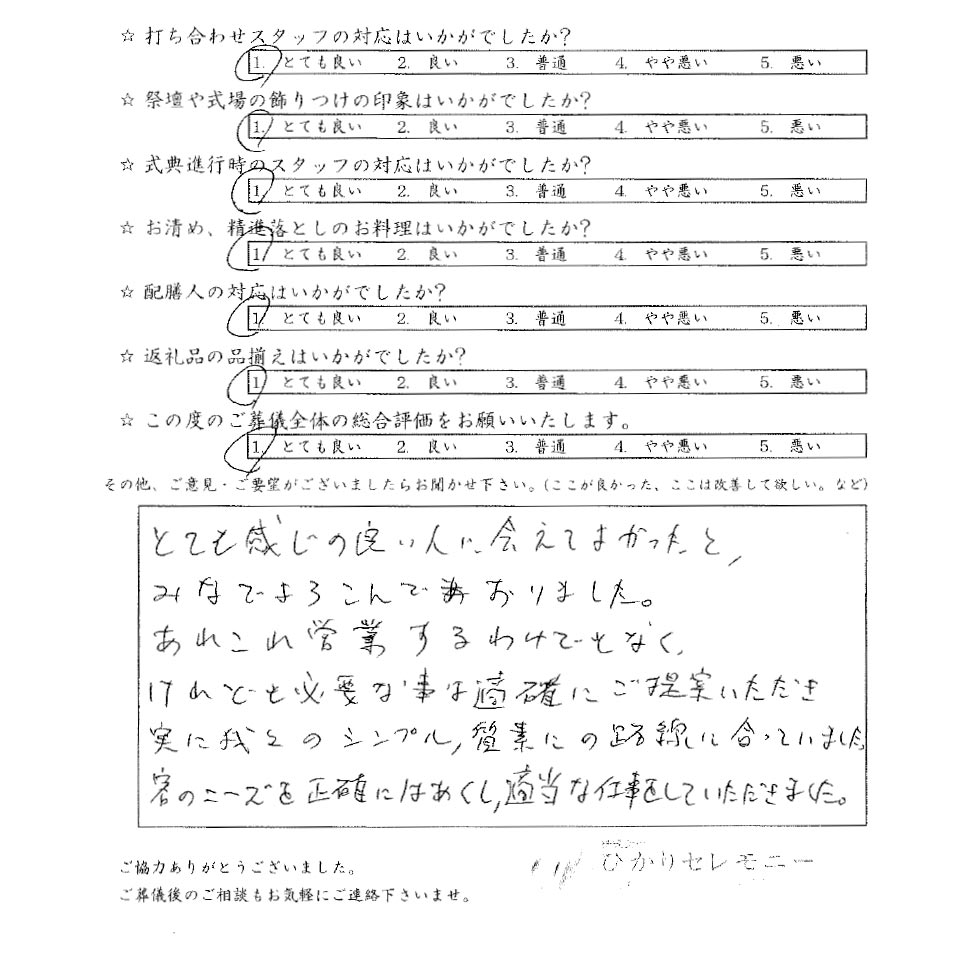 ☆ 打ち合わせスタッフの対応はいかがでしたか?
1. とても良い 2. 良い 3. 普通 4. やや悪い 5. 悪い
☆ 祭壇や式場の飾りつけの印象はいかがでしたか?
1. とても良い 2. 良い 3. 普通 4. やや悪い 5. 悪い
☆ 式典進行時のスタッフの対応はいかがでしたか?
1. とても良い 2. 良い 3. 普通 4. やや悪い 5. 悪い
☆ お清め、精進落としのお料理はいかがでしたか?
1. とても良い 2. 良い 3. 普通 4. やや悪い 5. 悪い
☆ 配膳人の対応はいかがでしたか?
1. とても良い 2. 良い 3. 普通 4. やや悪い 5. 悪い
☆ 返礼品の品揃えはいかがでしたか?
1. とても良い 2. 良い 3. 普通 4. やや悪い 5. 悪い
☆ この度のご葬儀全体の総合評価をお願いいたします。
1. とても良い 2. 良い 3. 普通 4. やや悪い 5. 悪い
その他、ご意見・ご要望がございましたらお聞かせ下さい。(ここが良かった、ここは改善して欲しい。など)
とても感じの良い人に会えてよかったと、
みなでよろこんでおりました。
あれこれ営業するわけでもなく、
けれども必要な事は適確にご提案いただき
実に我々のシンプル,質素にの路線に合っていました
客のニーズを正確にはあくし,適当な仕事をしていただきました。
ご協力ありがとうございました。
ひかりセレモニー
ご葬儀後のご相談もお気軽にご連絡下さいませ。